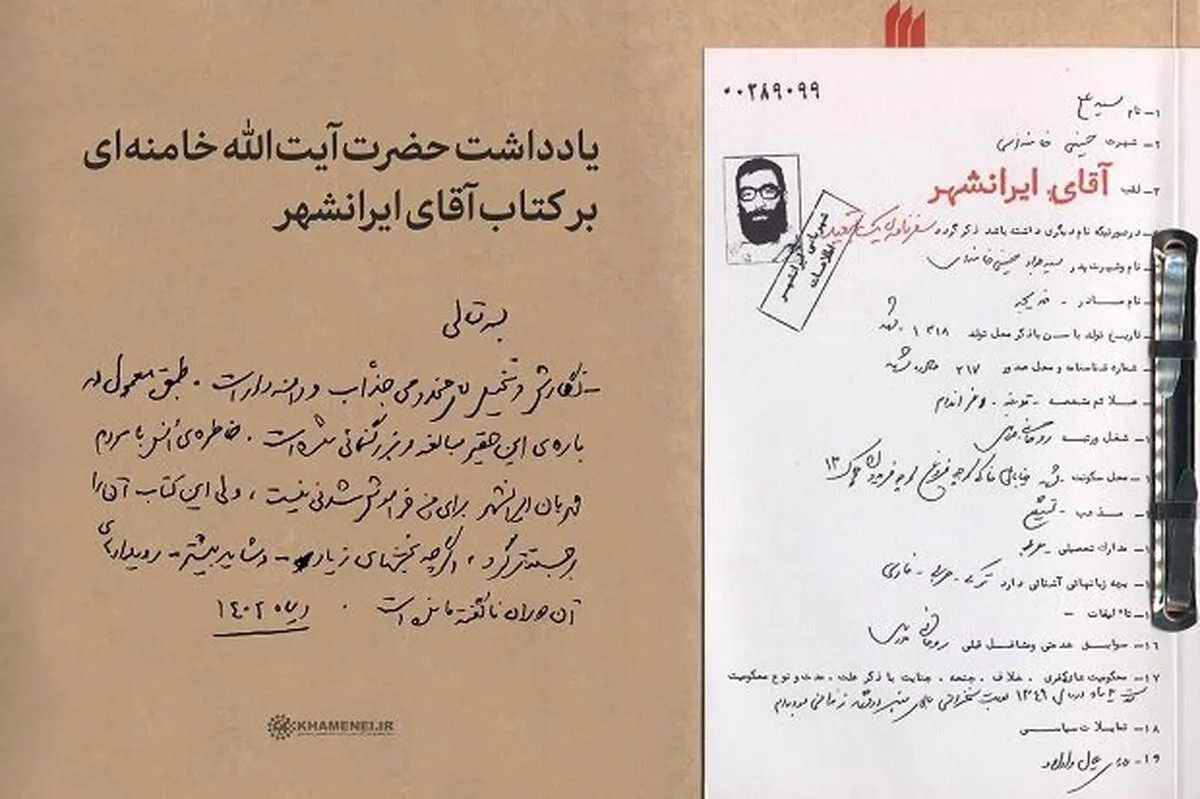 یادداشت حضرت آیت‌الله خامنه‌ای
بر کتاب آقای ایرانشهر
بسمه تعالی
- نگارش و تخیل مخدومی جذّاب و است. طبق معمول در
باره‌ی این حقیر مبالغه و بزرگنمائی شده است. خاطره‌ی اُنس با مردم
مهربان ایرانشهر برای من فراموش شدنی نیست، ولی این کتاب آن را
برجسته‌تر کرد، اگرچه بخشهای زیادی - و شاید بیشتر - رویدادهای
آن دوران ناگفته مانده است.
دیماه ۱۴۰۲
KHAMENEI.IR
۰۰۳۸۹۰۹۹
۱- نام سید علی
۲- شهرت حسینی خامنه‌ای
۳- لقب آقای ایرانشهر
در صورتیکه نام دیگری داشته باشد ذکر گردد سفرنامه یک تبعید
نام وشهرت پدر سید جواد حسینی خامنه‌ای
نام مادر - خدیجه
تاریخ تولد با سن با ذکر محل تولد ۱۳۱۸ مشهد
شماره شناسنامه و محل صدور ۲۱۷ مشهد
علائم مشخصه -
شغل ورتبه روحانی
محل سکونت مشهد خیابان
مذهب - تشیع
مدارک تحصیلی
بچه زبانهائی آشنائی دارد ترکی - عربی - فارسی
تالیفات -
۱۶- سوابق خدمتی ومشاغل قبلی روحانی
۱۷- محکومیت کیفری . خلاف . جنحه . جنایت با ذکر علت . مدت و نوع محکومیت
۱۳۴۹
۱۸- تمایلات سیاسی
۱۹-